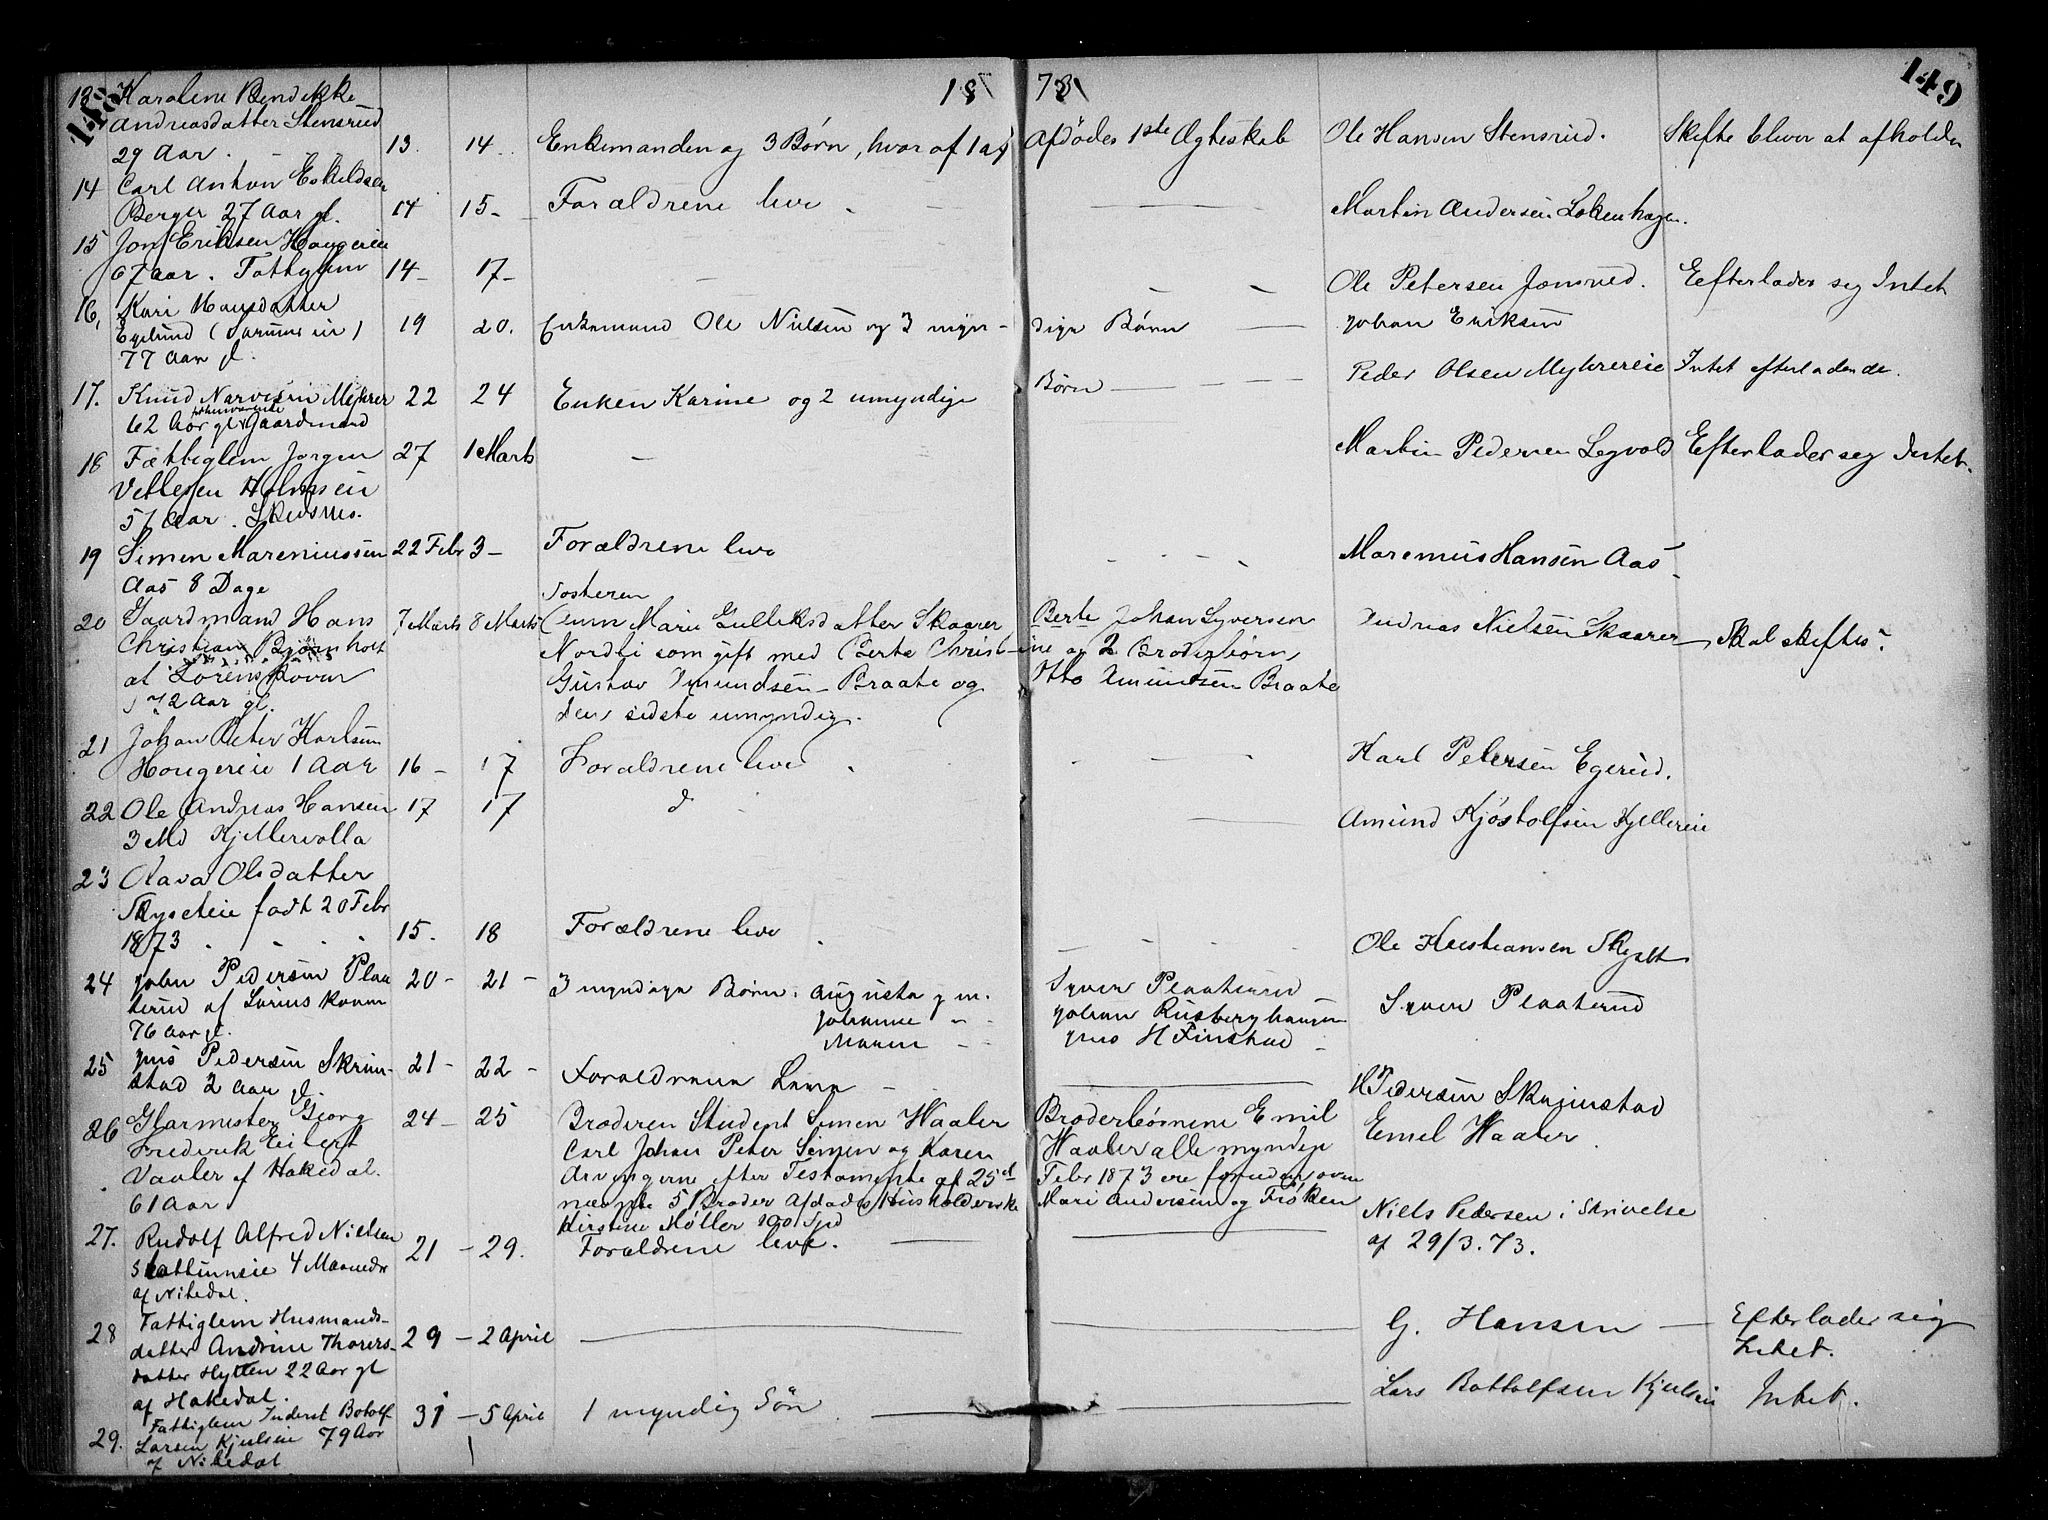 148 18 73 149
13 Karoline Bendikke
Andreasdatter Stensrud
29 Aar. 13. 14. Enkemanden og 3 Børn, hvor af 1 af Afdödes 1ste Ægteskab Ole Hansen Stensrud. Skifte bliver at afholde
14 Carl Anton Eskildsen
Berger 27 Aar gl. 14 15 Forældrene leve Martin Andersen Lökenhagen.
15 Jon Eriksen Haugereie
67 Aar. Fattiglem 14 17 Ole Petersen Jonsrud. Eefterlader sig Intet
16, Kari Hansdatter
Egelund
77 Aar gl. 19 20. Enkemand Ole Nielsen og 3 myn- dige Børn Johan Eriksen
17. Knud Narvesen Myhrer 22 24 Enken Karine og 2 umyndige Børn Peder Olsen Myhrereie Intet efterladende.
62 Aar gl. Gaardmand
18 Fattiglem Jørgen 27 1 Marts Martin Pedersen Legvold Efterlader sig Intet.
Vettesen Holmseie
57 Aar. Skedsmo.
19 Simen Mareniussen 22 Febr 3 Forældrene leve Marenius Hansen Aas
Aas 8 Dage
Søsteren
20 Gaardmand Hans 7 Marts 8 Marts Anne Marie Gulliksdatter Skaarer Berte Johan Syversen Andreas Nielsen Skaarer Skal skiftes.
Christian Bjørnholt Nordli som gift med Berte Christ- ine og 2 Broderbørn
af Lørenskoven Gustav Amundsen Braate og Otto Amundsen Braate
72 Aar gl. den sidste umyndig.
21 Johan Peter Karlsen
Hougereie 1 Aar 16 17 Forældrene leve Karl Petersen Egerud.
22 Ole Andreas Hansen 17 17 d Amund Kjöstolfsen Kjellereie
3 Md Kjellervolla
23 Olava Olsdatter
Skyseteie født 20 Febr
1873 15. 18 Forældrene leve Ole Kristiansen Skyset
24 John Pedersen Plaa 20 21 3 myndige Børn: Augusta g. m. Syver Plaaterud Syver Plaaterud
terud af Lørenskoven Johanne Johan Rusberghaugen
76 Aar gl. Maren Jens H Finstad
25 Jens Pedersen Skrim- 21 22 Forældrene Leve H Pedersen Skrimstad
stad 2 Aar gl.
26 Glarmester Georg 24 25 Broderen Student Simen Waaler Broderbørnene Emil Emil Waaler.
Frederik Eilert Carl Johan Peter Simen og Karen Waaler alle myndige
Vaaler af Hakedal. Arvingerne efter Testamente af 25de Febr 1873 ere foruden oven
61 Aar nævnte 5 Brøder Afdødes Husholderske Mari Andersen og Frøken
Kirstine Møller 100 Spd
27. Rudolf Alfred Nielsen 21 29. Forældrene leve. Niels Pedersen i Skrivelse
Slattumseie 4 Maaneder af 29/3. 73.
af Nitedal.
28 Fattiglem Husmands-
datter Andrine Thorers- 29 2 April G. Hansen Efterlader sig
datter Hytten 22 Aar gl Intet.
af Hakedal.
29. Fattiglem Inderst Botolf 31 5 April 1 myndig Søn Lars Bottolfsen Kjulseie Intet.
Larsen Kjulseie 79 Aar
af Nitedal